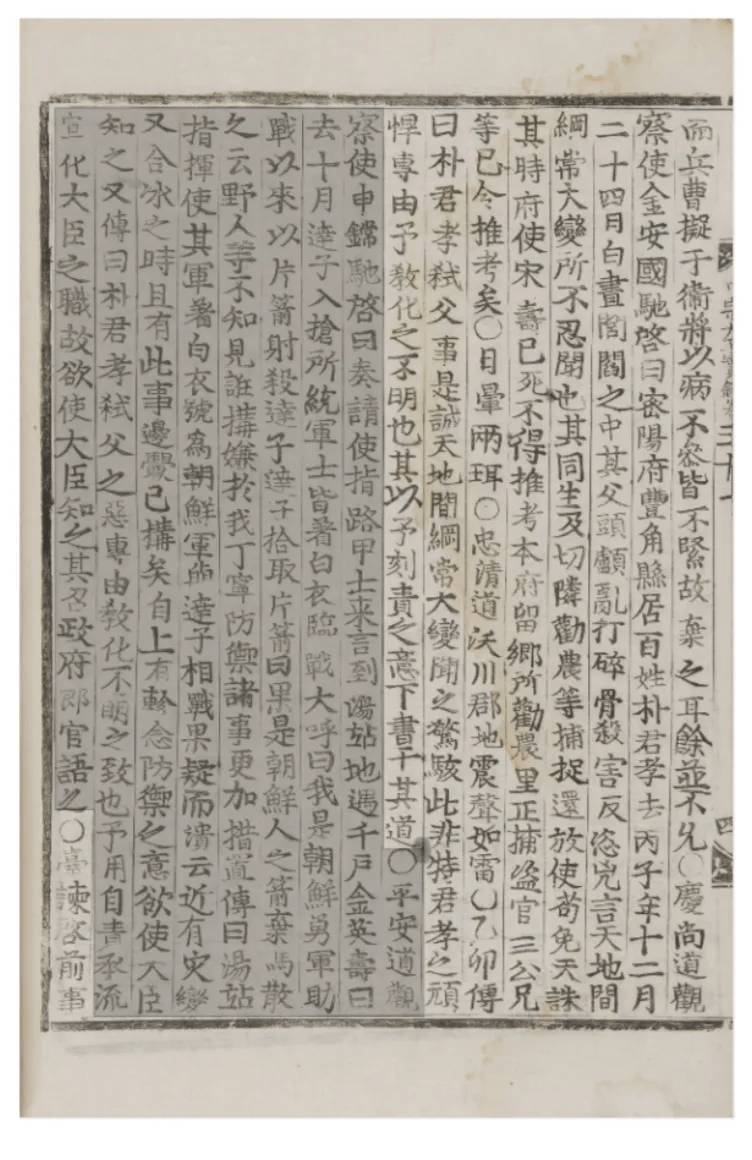 而兵曹擬于衛將以病不參皆不緊故棄之耳餘並不允○慶尚道觀
察使金安國馳啓曰密陽府豐角縣居百姓朴君孝去丙子年十二月
二十四日白晝閭閻之中其父頭顱亂打碎骨殺害反恣兇言天地間
綱常大變所不忍聞也其同生及切隣勸農等捕捉還放使苟免天誅
其時府使宋壽已死不得推考本府留鄕所勸農里正捕盜官三公兄
等已令推考矣○日暈兩珥○忠淸道沃川郡地震聲如雷○乙卯傳
曰朴君孝弑父事是誠天地間綱常大變聞之驚駭此非特君孝之頑
悍專由予敎化之不明也其以予刻責之意下書于其道○平安道觀
察使申鏛馳啓曰奏請使指路甲士来言到湯站地遇千戶金英壽曰
去十月達子入搶所統軍士皆著白衣臨戰大呼曰我是朝鮮勇軍助
戰以來以片箭射殺達子達子拾取片箭曰果是朝鮮人之箭棄馬散
之云野人等不知見誑構嫌於我丁寧防禦諸事更加措置傳曰湯站
指揮使其軍著白衣號爲朝鮮軍與達子相戰果疑而潰云近有灾變
又合冰之時且有此事邊釁已構矣自上有軫念防禦之意欲使大臣
知之又傳曰朴君孝弑父之惡專由敎化不明之致也予用自責承流
宣化大臣之職故欲使大臣知之其召政府郞官語之○臺諫啓前事
四